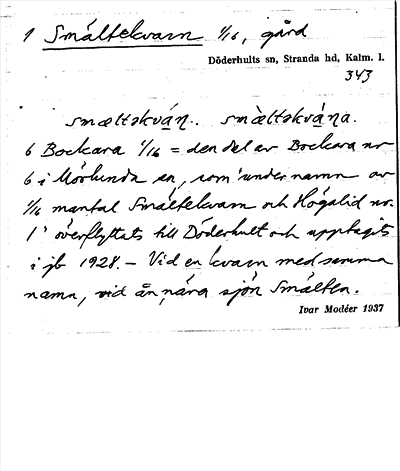 1 Småltekvarn 1/16, gård
Döderhults sn, Stranda hd, Kalm. l.
343
smæltəkván.. smæ̀ltəkvána.
6 Bockara 1/16 = den del av Bockara nr
6 i Mörlunda sn, som "under namn av
1/16 mantal Småltekvarn och Högalid nr.
1" överflyttats till Döderhult och upptagits
i jb 1928. – Vid en kvarn med samma
namn, vid ån, nära sjön Smålten.
Ivar Modéer 1937